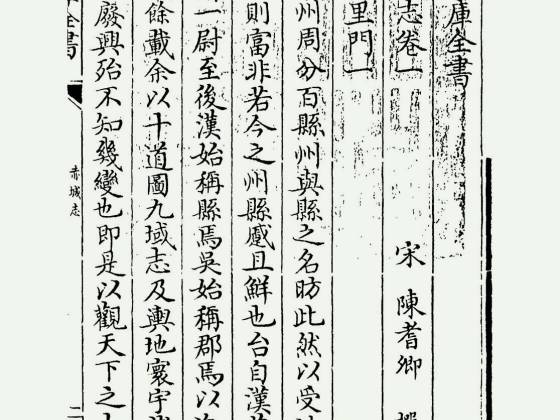 庫全書
志卷一
宋 陳耆卿
里門一
州周分百縣州與縣之名昉此然以受
則富非若今之州縣蹙且鮮也台自漢
一尉至後漢始稱縣焉吳始稱郡焉以
餘載余以十道圖九域志及輿地寰宇
廢興殆不知幾變也即是以觀天下之
全書
赤城志